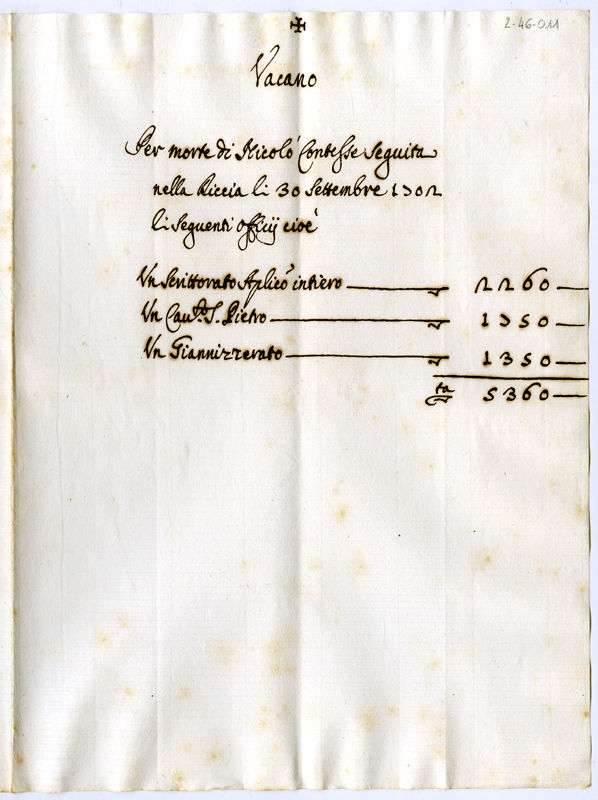 ✠
2-46-011
Vacano
Per morte di Nicolò Contesse Seguita
nella Riccia li 30 Settembre 1702
li seguenti officij cioè
Un Scrittorato Aplicô intiero — 2260 —
Un Cau.to S. Pietro — 1750 —
Un Giannizzerato — 1350 —
ta 5360 —